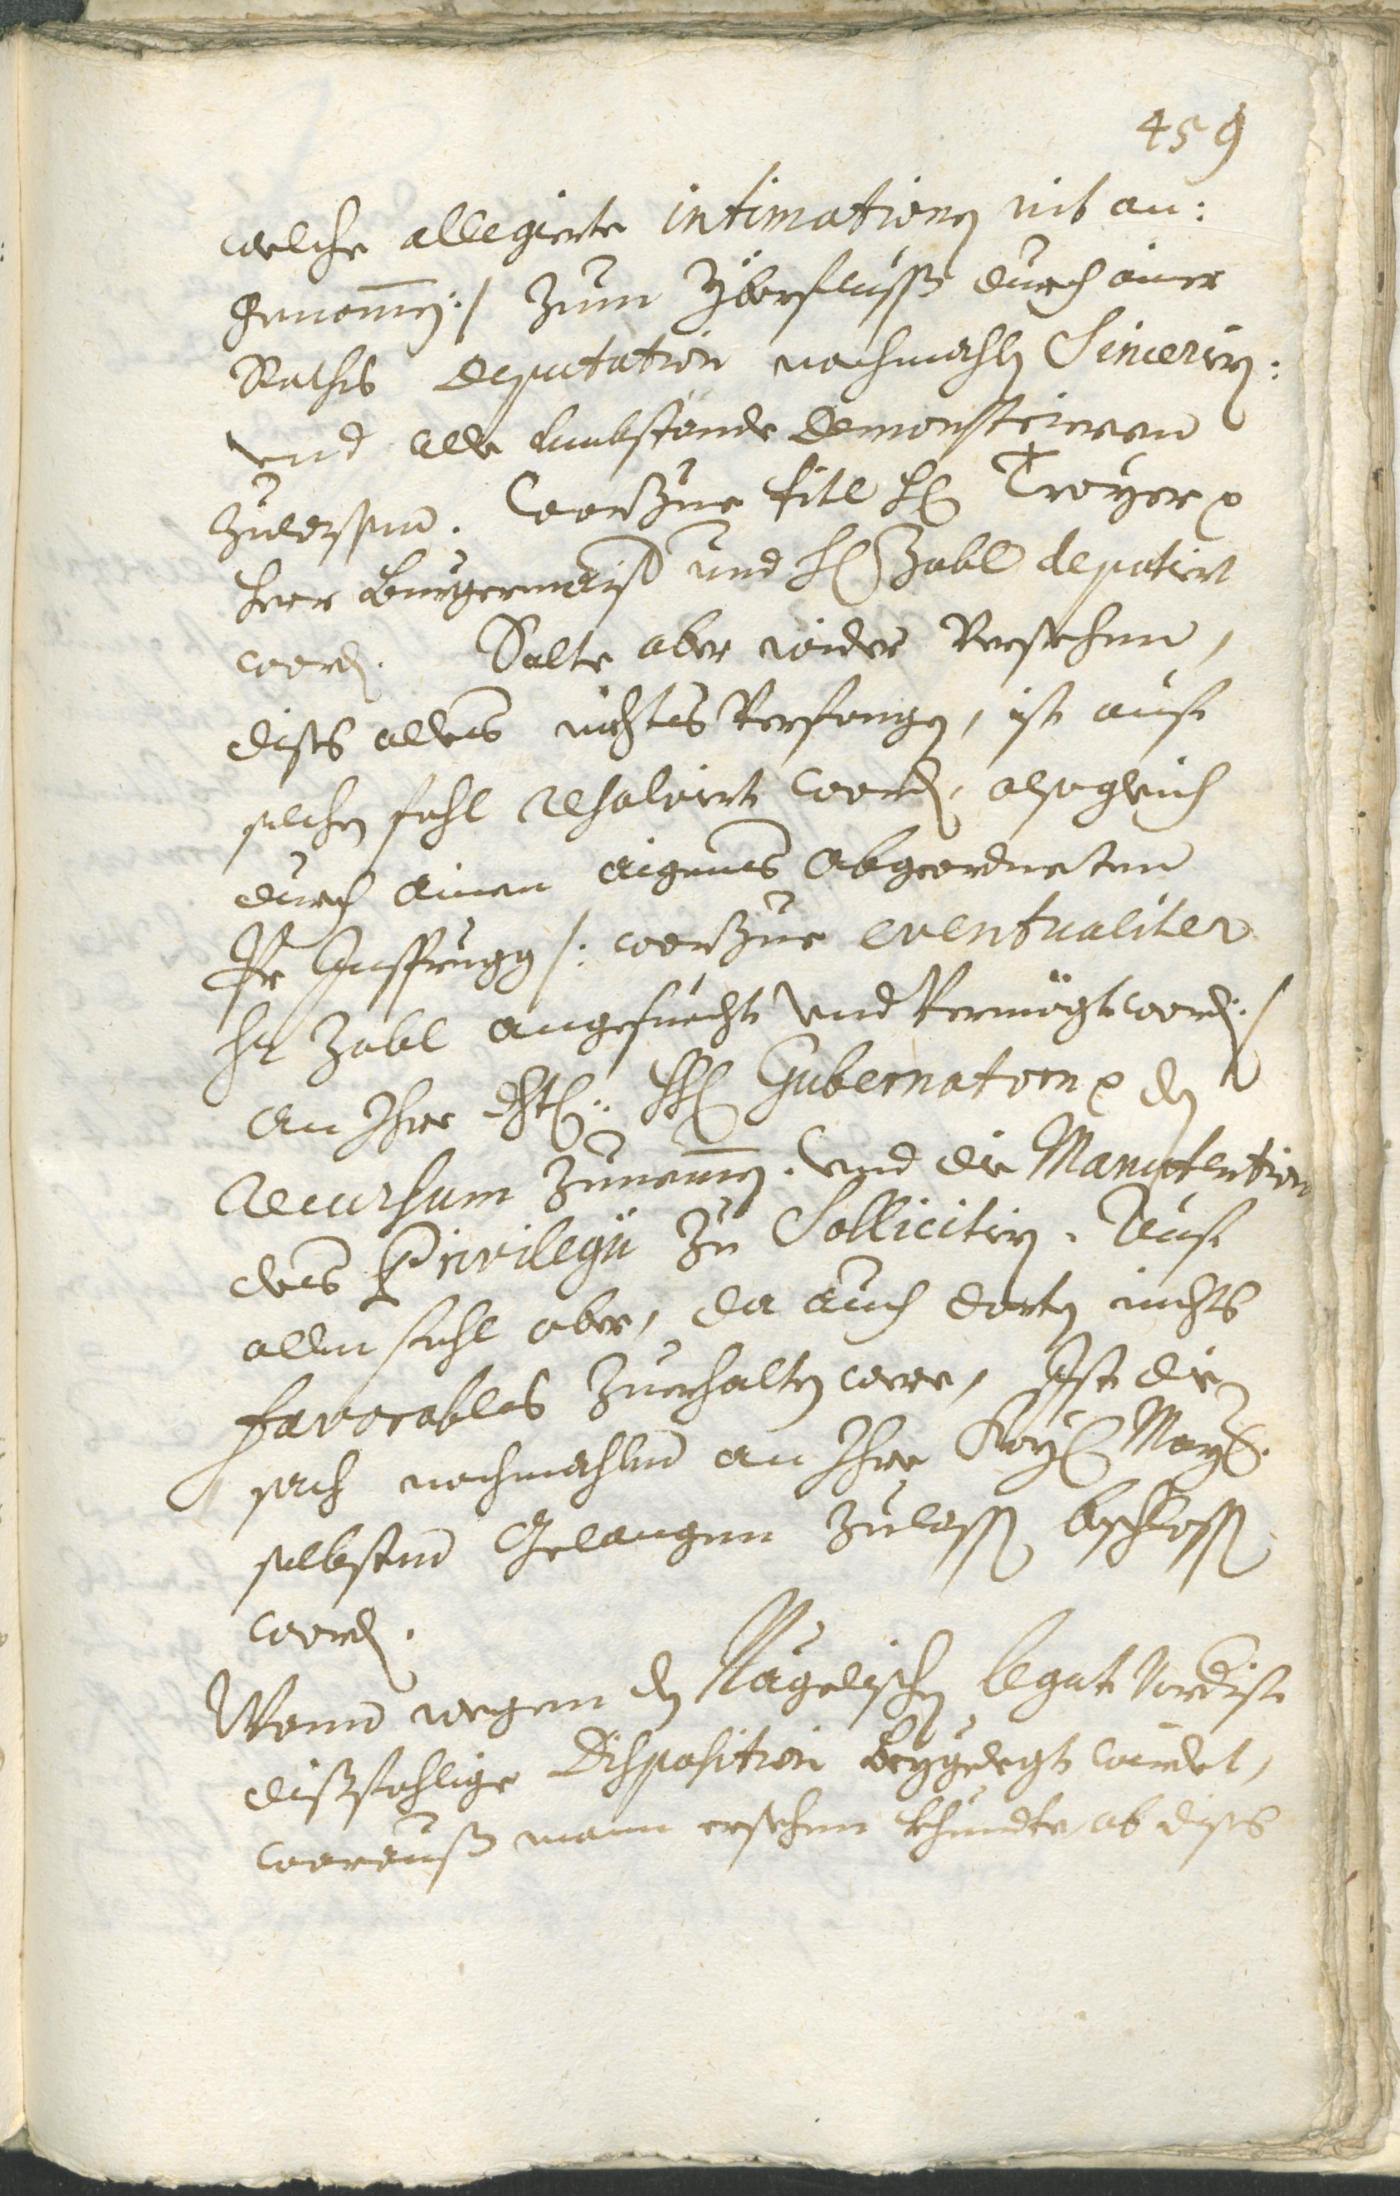 459
welche allegierte intimationen nit an:
genomen:/ zum Yberfluss durch ainer
Raths deputation nochmahln Sincerirn:
und alle umbstende demonstrieren
zulassen. Warzue titl H. Troyer
herr Burgermaister und H. Zäbl deputiert
worden. Solte aber wider Versehen,
dises alles nichtes Verfangen, ist auf
solchen fahl resolviert worden, alsogleich
durch ainen aignes Abgeordneten
Insprugg /: warzue eventualiter
Hr. Zäbl angesuecht und Vermögt worden:/
an Ihre HH. Gubernatorn den
recursum zunemen. Und die Manutention
des Privilegii zu Sollicitirn. Auf
allen fahl aber, da auch dorten nichts
favorables zuerhalten were, Ist die
sach nochmahlen an Ihre Kay. May.
selbsten gelangen zulassen beschlossen
worden.
Wann wegen den Nägelischen legat vordist
dissfahlige Disposition beygelegt würdet,
worauss mann ersehen khundte, ob dises